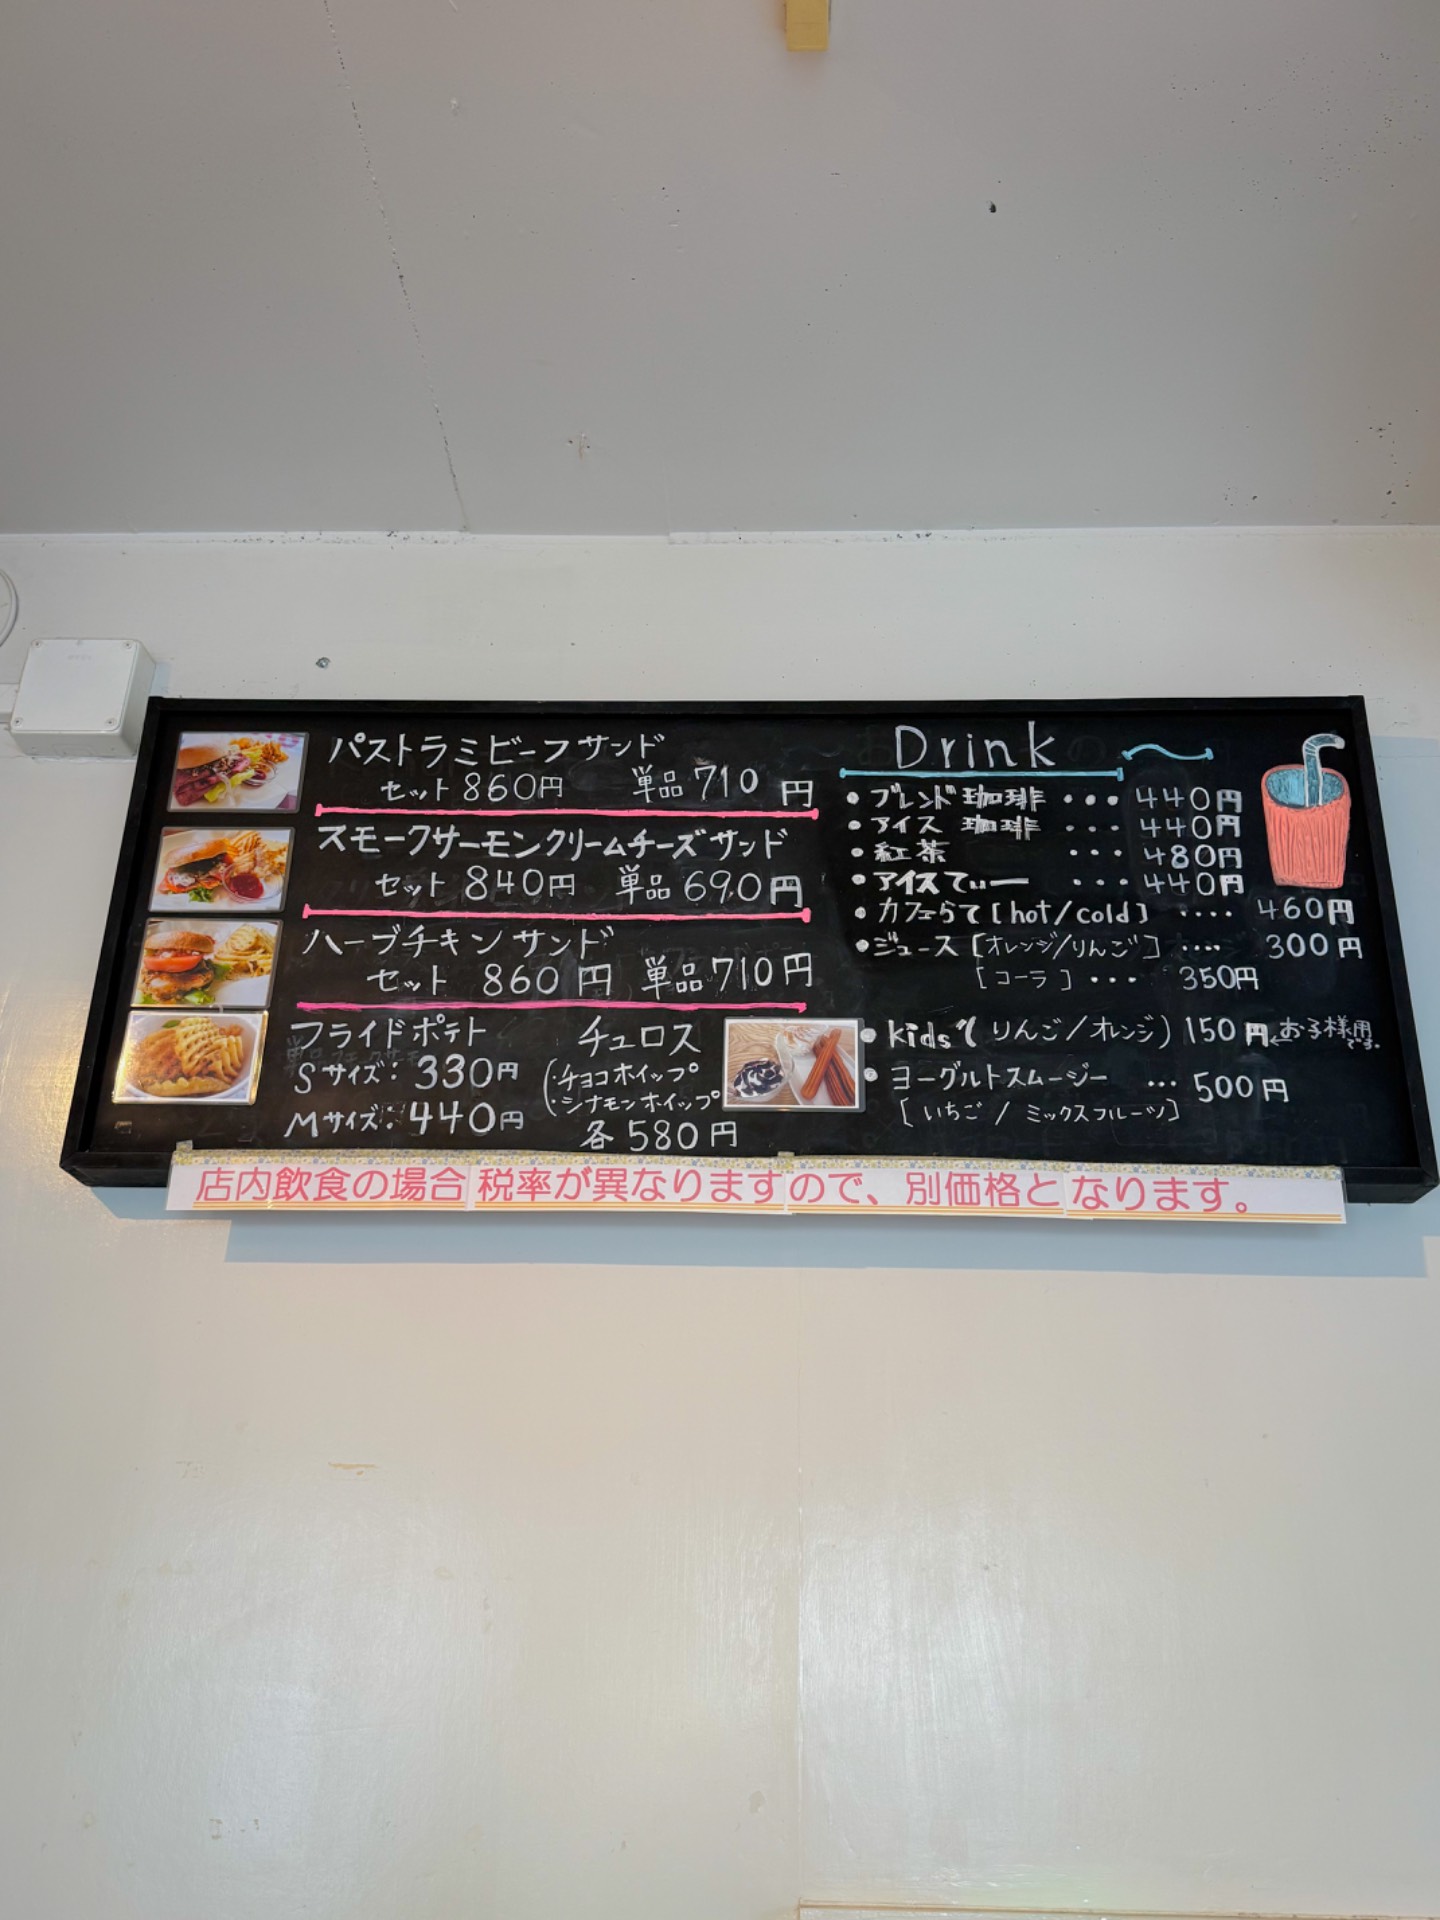 パストラミビーフサンド
セット 860円 単品 710円
スモークサーモンクリームチーズサンド
セット 840円 単品 690円
ハーブチキンサンド
セット 860円 単品 710円
フライドポテト
Sサイズ: 330円
Mサイズ: 440円
チュロス
(・チョコホイップ
(・シナモンホイップ
各 580円
Drink
・ブレンド珈琲 ・・・ 440円
・アイス 珈琲 ・・・ 440円
・紅茶 ・・・ 480円
・アイスてぃー ・・・ 440円
・カフェらて [hot/cold] ・・・・ 460円
・ジュース [オレンジ/りんご] ・・・・ 300円
[コーラ] ・・・ 350円
・kids' (りんご/オレンジ) 150円 ←お子様用です。
・ヨーグルトスムージー ・・・ 500円
[いちご / ミックスフルーツ]
店内飲食の場合税率が異なりますので、別価格となります。